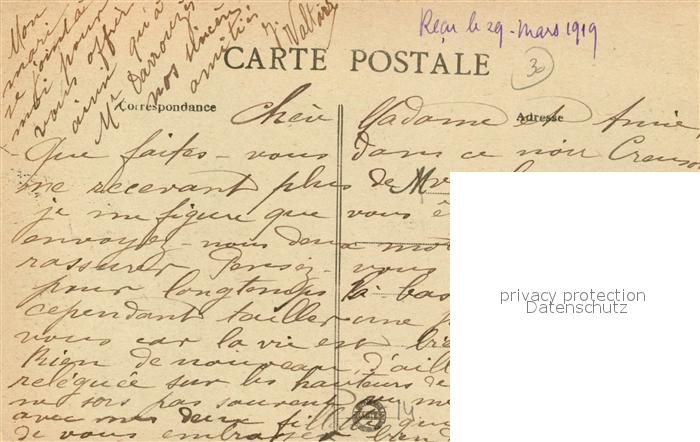 Mon
mari
se joint à
moi pour
vous offrir
ainsi qu'à
Mr Darrouzès
nos sincères
amitiés
J Vallière
Reçu le 29 - Mars 1919
CARTE POSTALE
30
Correspondance
Adresse
Chère Madame et Amie,
Que faites-vous dans ce noir Creusot
ne recevant plus de
je me figure que vous
envoyez-nous deux mots
rassurer Pensez-vous
pour longtemps là bas
cependant tailler une
vous car la vie est
Rien de nouveau d'aill
reléguée sur les hauteurs de
ne sors pas souvent
avec mes deux
de vous embrasser
14
privacy protection
Datenschutz